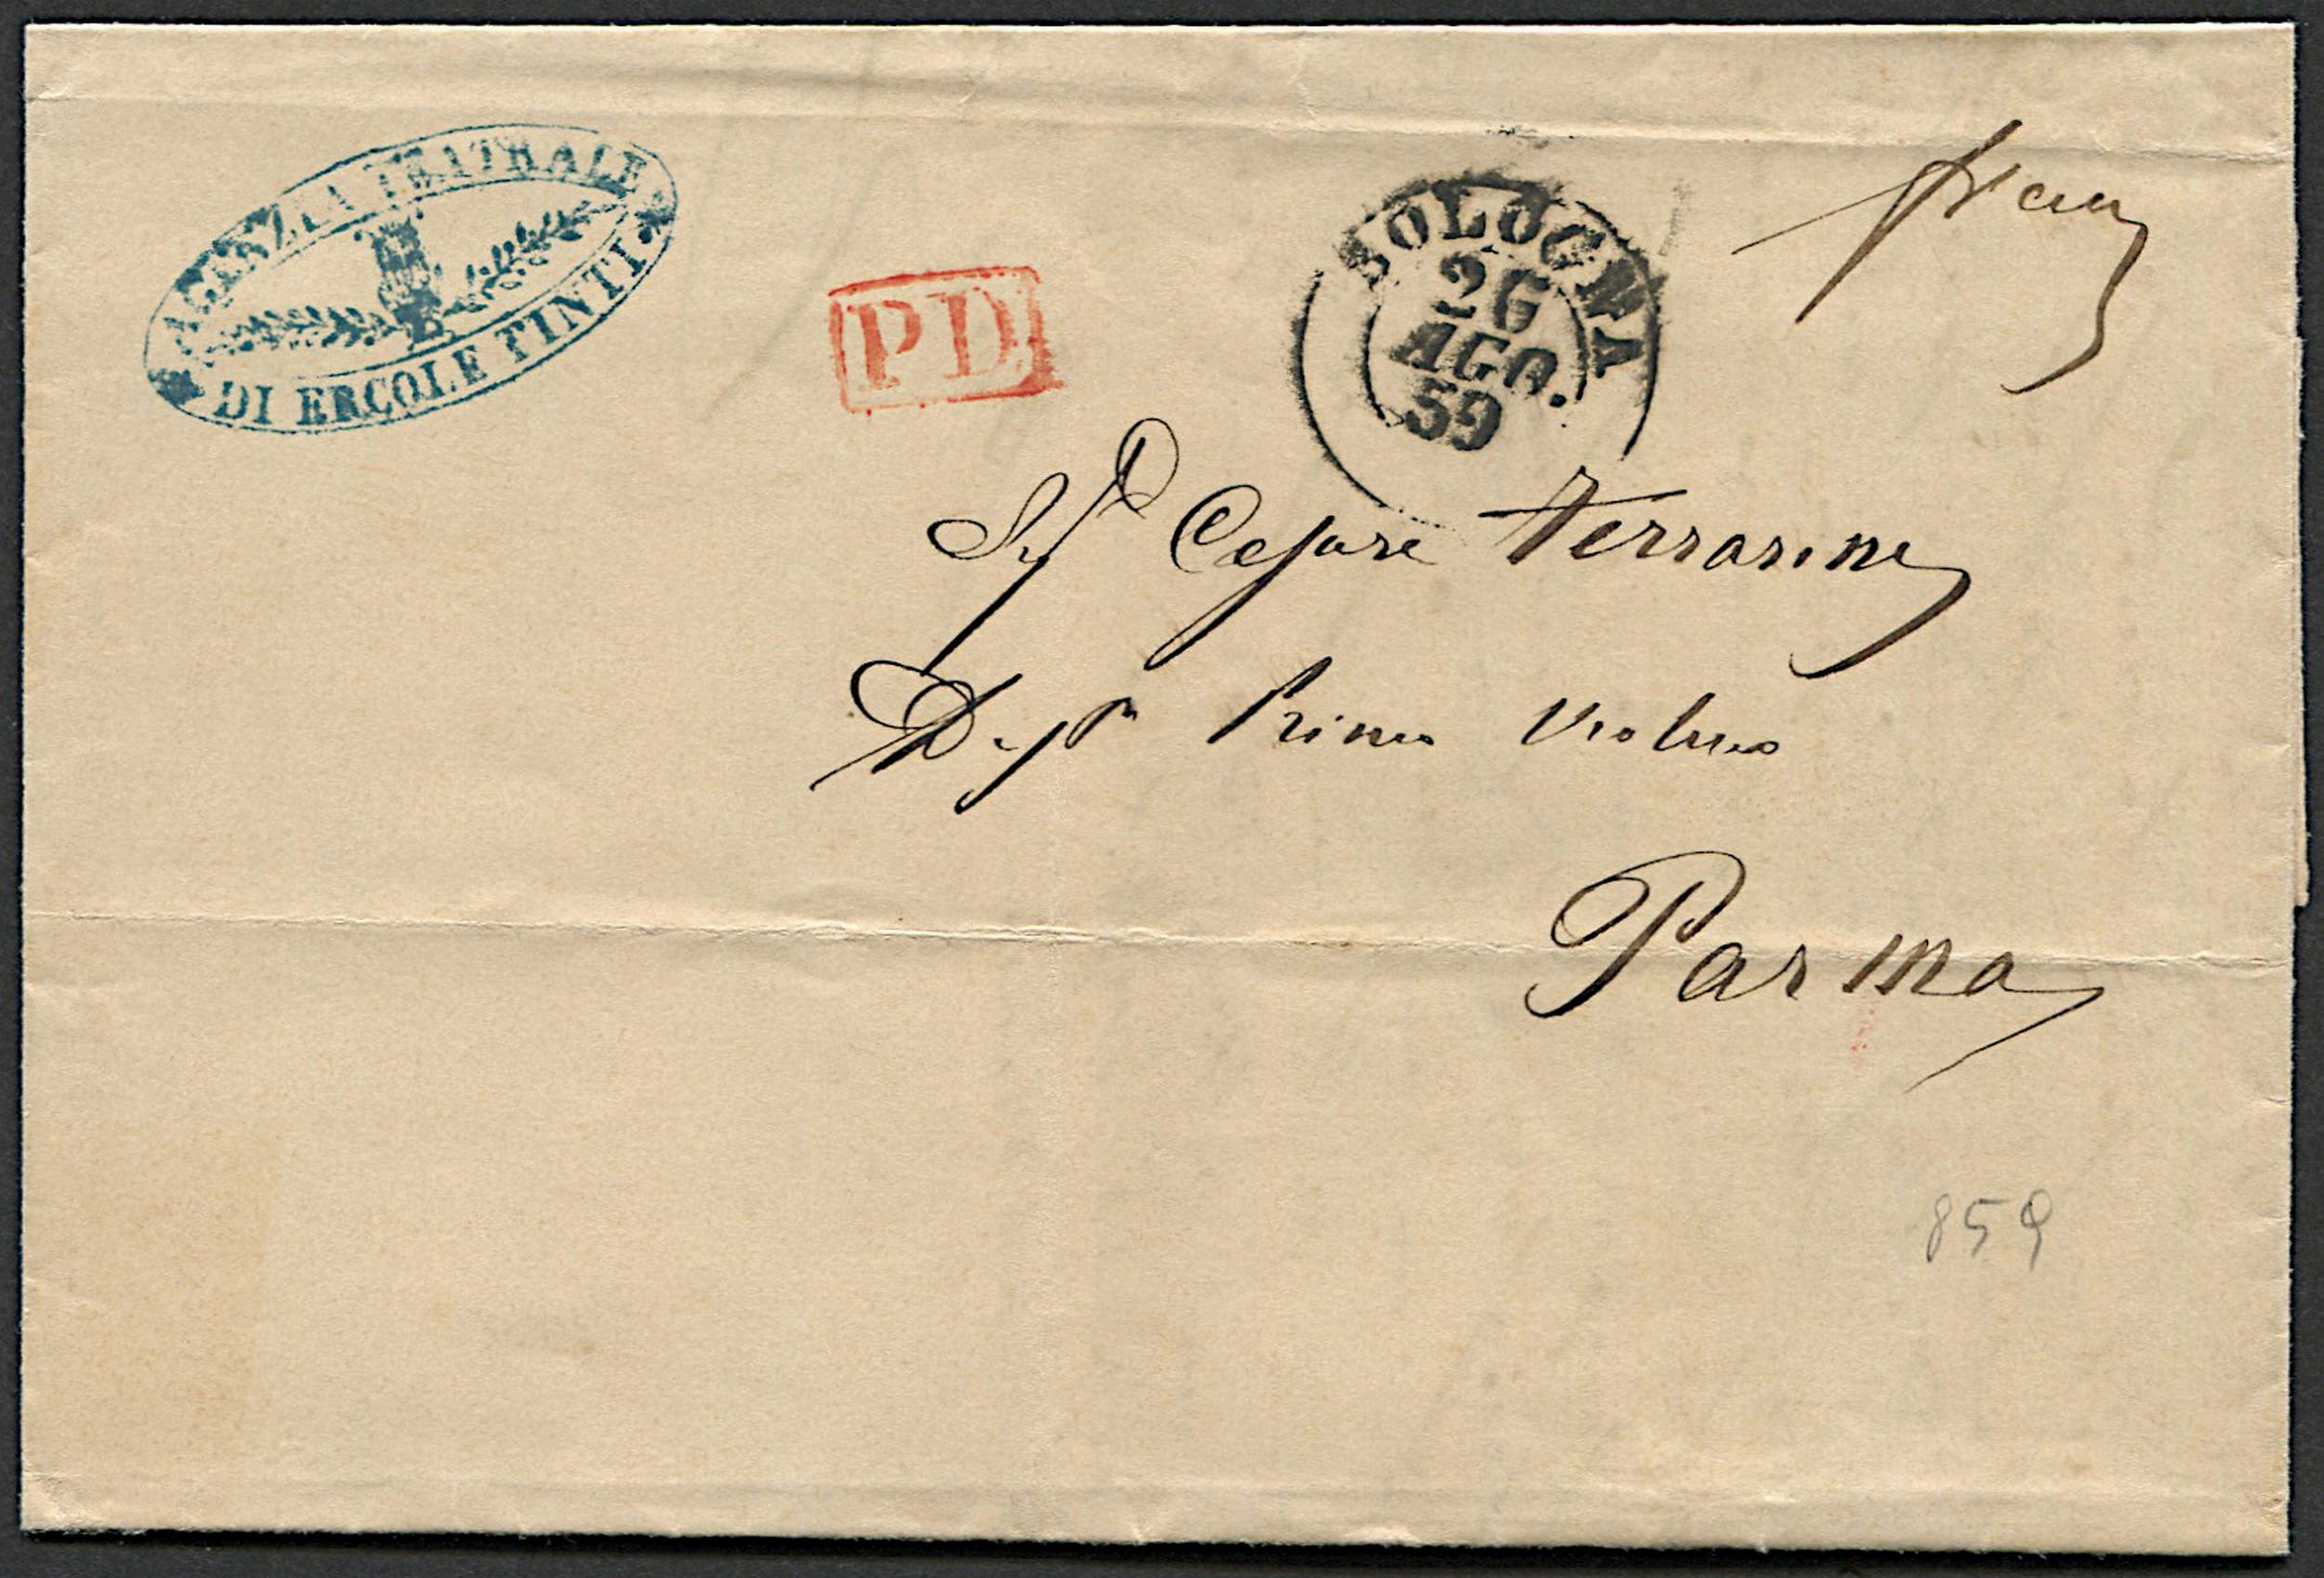 AGENZIA TEATRALE
DI ERCOLE TINTI
PD
BOLOGNA
26
AGO.
59
franca
Sig.r Cesare Ferrarini
Primo Violino
Parma
859